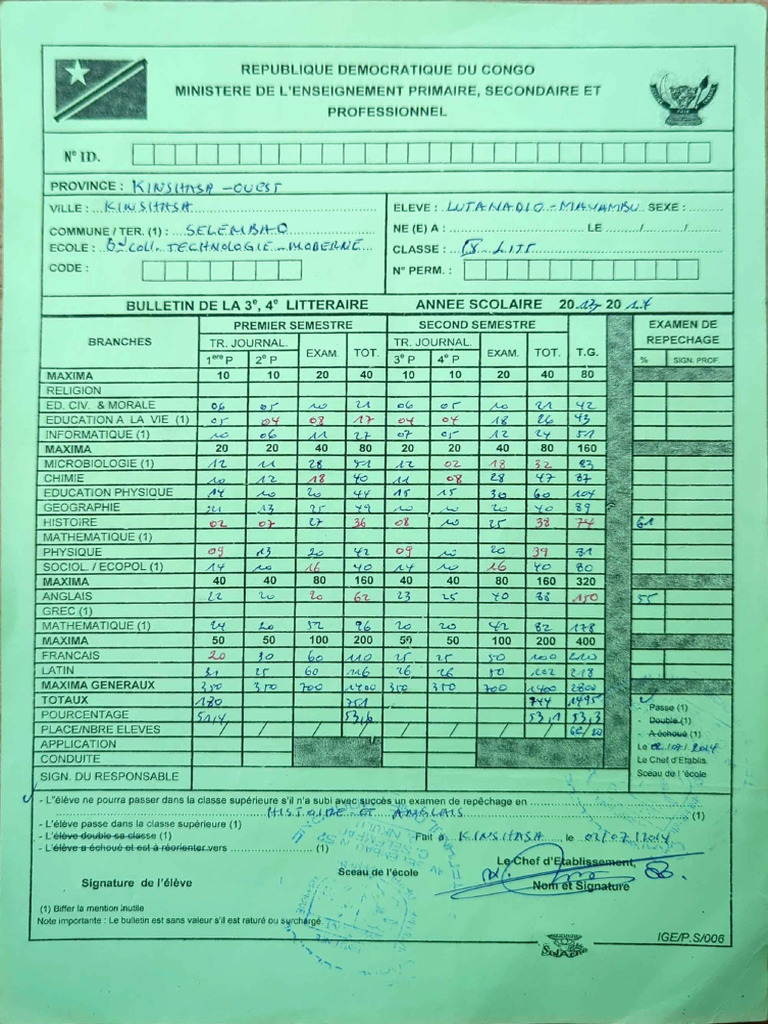 REPUBLIQUE DEMOCRATIQUE DU CONGO
MINISTERE DE L'ENSEIGNEMENT PRIMAIRE, SECONDAIRE ET
PROFESSIONNEL
N° ID.
PROVINCE : KINSHASA-OUEST
VILLE : KINSHASA ELEVE : LUTANADIO-MAYAMBU SEXE :
COMMUNE / TER. (1) : SELEMBAO NE (E) A : LE / /
ECOLE : TECHNOLOGIE-MODERNE CLASSE : LITT
CODE : N° PERM. :
BULLETIN DE LA 3e, 4e LITTERAIRE ANNEE SCOLAIRE 2013-20
BRANCHES PREMIER SEMESTRE SECOND SEMESTRE T.G. EXAMEN DE REPECHAGE
TR. JOURNAL. EXAM. TOT. TR. JOURNAL. EXAM. TOT.
1ere P 2e P 3e P 4e P % SIGN. PROF.
MAXIMA 10 10 20 40 10 10 20 40 80
RELIGION
ED. CIV. & MORALE 06 05 10 21 06 05 10 21 42
EDUCATION A LA VIE (1) 05 04 08 17 04 04 18 26 43
INFORMATIQUE (1) 10 06 11 27 07 05 12 24 51
MAXIMA 20 20 40 80 20 20 40 80 160
MICROBIOLOGIE (1) 12 11 28 51 12 02 18 32 83
CHIMIE 10 12 18 40 11 08 28 47 87
EDUCATION PHYSIQUE 14 10 20 44 15 15 30 60 104
GEOGRAPHIE 11 13 25 49 10 10 20 40 89
HISTOIRE 02 07 27 36 08 10 25 38 74 61
MATHEMATIQUE (1)
PHYSIQUE 09 13 20 42 09 10 20 39 81
SOCIOL. / ECOPOL (1) 14 10 16 40 14 10 16 40 80
MAXIMA 40 40 80 160 40 40 80 160 320
ANGLAIS 22 20 20 62 23 25 40 88 150 55
GREC (1)
MATHEMATIQUE (1) 24 20 52 96 20 20 42 82 178
MAXIMA 50 50 100 200 50 50 100 200 400
FRANCAIS 20 30 60 110 25 25 50 100 210
LATIN 31 25 60 116 26 26 50 102 218
MAXIMA GENERAUX 350 350 700 1400 350 350 700 1400 2800
TOTAUX 180 751 744 1495
POURCENTAGE 51,4 53,6 53,1 53,3
PLACE/NBRE ELEVES / / / / / / / /
APPLICATION
CONDUITE
SIGN. DU RESPONSABLE
- Passe (1)
- Double (1)
- A échoué (1)
Le 02/07/2014
Le Chef d'Etablis.
Sceau de l'école
- L"élève ne pourra passer dans la classe supérieure s'il n'a subi avec succès un examen de repêchage en
HISTOIRE ET ANGLAIS (1)
- L'élève passe dans la classe supérieure (1)
- L'élève double sa classe (1) Fait à KINSHASA, le 02/07/2014
- L'élève a échoué et à réorienter vers (1)
Le Chef d'Etablissement,
Sceau de l'école
Signature de l'élève Nom et Signature
(1) Biffer la mention inutile
Note importante : Le bulletin est sans valeur s'il est raturé ou surchargé
IGE/P.S/006